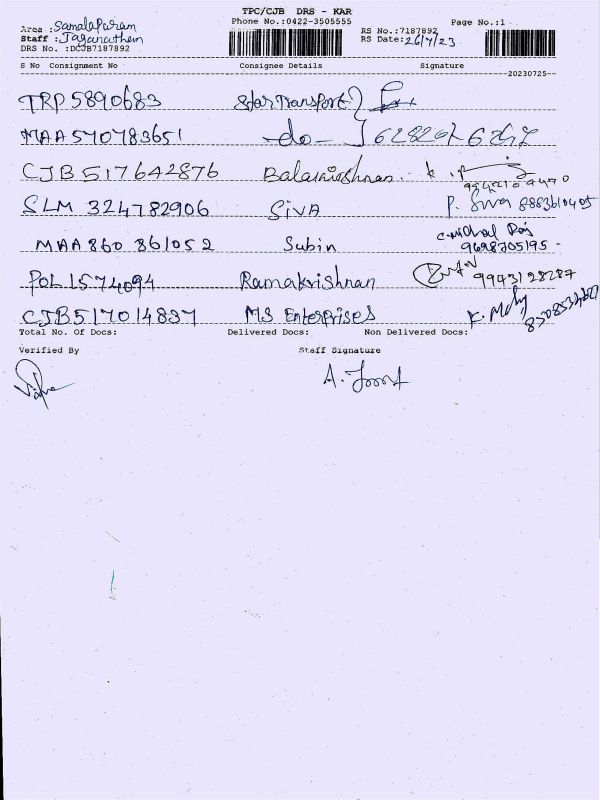 TPC/CJB DRS - KAR
Area : Samalapuram Phone No.:0422-3505555 Page No.:1
Staff : Jaganathan RS No.:7187892
DRS No. :DCJB7187892 RS Date: 26/7/23
S No Consignment No Consignee Details Signature
20230725
TRP 5890683 Star Transport
MAA 570783651 -do-
CJB 517642876 Balakrishnan
SLM 324782906 SIVA P. Siva 8883610405
MAA 860 361052 Subin 9698705195
POL 1574094 Ramakrishnan 9943128287
CJB 517014837 MS Enterprises
Total No. Of Docs: Delivered Docs: Non Delivered Docs:
Verified By Staff Signature